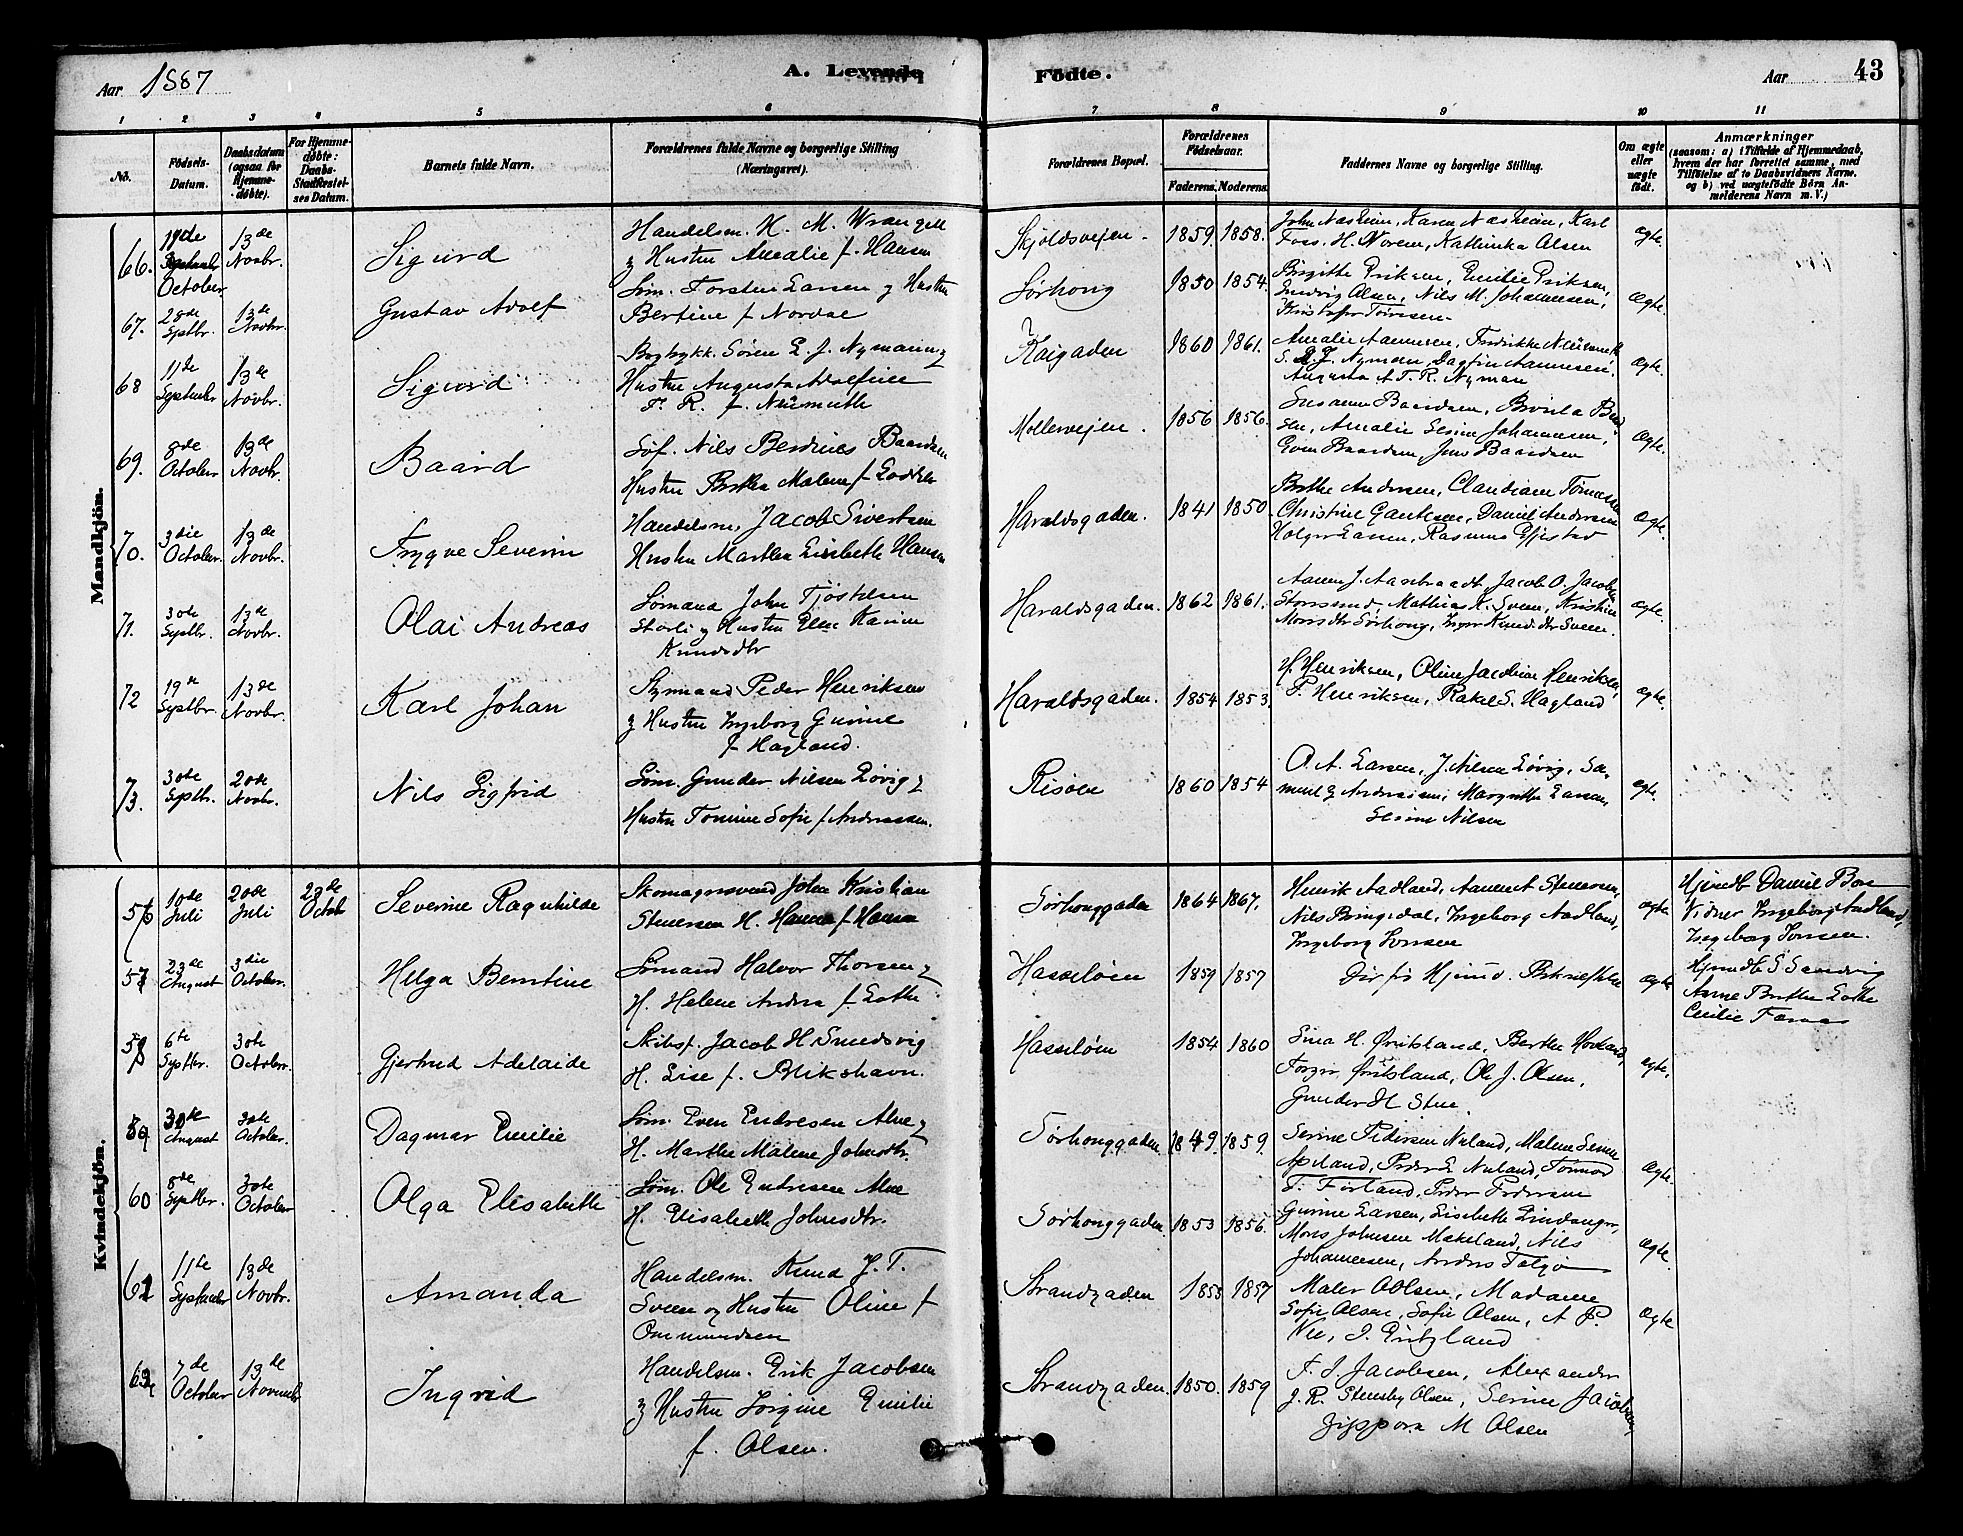 Aar 1887
A. Levende
Födte.
Aar
43
1 2 3 4 5 6 7 8 9 10 11
No.
Födsels-Datum.
Daabsdatum (ogsaa for Hjemme-døbte).
For Hjemme-døbte: Daabs-Stadfæstel-ses Datum.
Barnets fulde Navn.
Forældrenes fulde Navne og borgerlige Stilling (Næringsvei).
Forældrenes Bopæl.
Forældrenes Födselsaar.
Faderens. Moderens.
Faddernes Navne og borgerlige Stilling.
Om ægte eller uægte født.
Anmærkninger
(saasom: a) i Tilfælde af Hjemmedaab, hvem der har forrettet samme, med Tilföielse af to Daabsvidners Navne, og b) ved uægtefödte Börn An-melderens Navn m. V.)
Mandkjön.
66. October 13de Novbr. Sigurd
Handelsm. K. M. Wrangell
og Hustru Amalie f. Hansen
Skjoldsvejen. 1859. 1858.
John Næsheim, Karen Næsheim, Karl
Foss, H. Noren, Kathinka Olsen
ægte.
67. 28de Septbr. 13de Novbr. Gustav Adolf
Søm. Torsten Larsen og Hustru
Bertine f. Nordal
Sørhoug 1850 1854.
Birgitte Eriksen, Emilie Eriksen,
Olsen, Nils M. Johannesen,
Ægte.
68 11te September 13de Novbr. Sigurd
Bogtrykk. Sören E. J. Nymann og
Hustru Augusta Adolfine
F. R. f. Neümuth
Kaigaden 1860 1861.
Amalie Aannesen, Fredrikke Neümuth
S. E. J. Nyman, Dagfin Aannesen,
Augusta A. F. R. Nyman
ægte.
69. 8de October 13de Novbr. Baard
Nils Berdines Baardsen
Hustru Berthe Malene f. Lodden
Mollervejen. 1856 1856.
Susanne Baardsen,
Amalie Sesine Johannesen,
Even Baardsen, Jens Baardsen
Ægte.
70. 3die October. 13de Novbr. Trygve Severin
Handelsm. Jacob Sivertsen
Hustru Marthe Lisebeth Hansen
Haraldsgaden. 1841 1850
Berthe Andersen,
Christine Gautesen, Daniel Andersen
Holger Larsen, Rasmus Gjestad
Ægte.
71. 30te Septbr. 13de Novbr. Olai Andreas
Sømand John Tjöstelsen
og Hustru Else Karine
Knudsdtr
Haraldsgaden. 1862 1861.
Jacob O. Jacobsen
Storesund, Mathias K. Sveen, Kristine
Monsdtr Sørhoug, Inger Knudsdtr Sveen.
ægte.
72 19de Septbr. 13de Novbr. Karl Johan
Sømand Peder Henriksen
og Hustru Ingeborg Gurine
f. Hagland.
Haraldsgaden. 1854 1853.
H. Henriksen, Oline Jacobine Henriksen,
P. Henriksen, Rakel S. Hagland
ægte.
73. 30te Septbr. 20de Novbr. Nils Sigfrid
Søm. Gunder Nilsen Løvig og
Hustru Tomine Sofie f. Andreassen.
Risöen 1860 1854
O. A. Larsen, J. Nilsen Løvig, Sa-
muel Andreassen, Margrethe Larsen,
Sesine Nilsen
ægte.
Kvindekjön.
56 10de Juli 20de Juli 23de Octob Severine Ragnhilde
Skomagersvend John Kristian
Stenersen H. Hanna f. Hansen
Sørhouggaden 1864 1867.
Henrik Aadland, Stenersen,
Nils Bringedal, Ingeborg Aadland,
Ingeborg Jonsen
ægte
Hjemdbt Daniel Boe
Vidner Ingeborg Aadland,
Ingeborg Jonsen.
57 23de August 3die October. Helga Berntine
Sømand Halvor Thorsen og
H. Helene Andrea f. Lothe
Hasseløen 1859 1857
Dir. for Hjemd. Bekræftelse
ægte
Hjemdbt S Sandvig
Anne Berthe Lothe
Cecilie
58 6te Septbr. 30te October Gjertrud Adelaide
Skibsf. Jacob H. Smedsvig
H. Lise f. Blikshavn.
Hasseløen 1854 1860
Sina H. Øritsland, Berthe Hovland,
Torger Øritsland, Ole J. Olsen,
Gunder H Stue.
ægte.
59 30te August 30te October. Dagmar Emilie
Søm. Even Endresen Alne og
H. Marthe Malene Johnsdtr.
Sørhouggaden 1849. 1859.
Serine Pedersen Nuland, Malene Serine
Apeland, Peder E Nuland, Tönnes
T. Førland, Peder Pedersen
Ægte.
60 8de Septbr. 30te October Olga Elisabeth
Søm. Ole Endresen Alne
H. Elisabeth Johnsdtr.
Sørhouggaden. 1853 1856.
Gurine Larsen, Lisebeth Lindanger,
Mons Johnsen Mæland, Nils
Johannesen, Anders Talgø
Ægte.
61 11te September 13de Novbr. Amanda
Handelsm. Knud J. T.
Sveen og Hustru Oline f.
Ommundsen
Strandgaden 1853 1857
Maler O Olsen, Madame
Sofie Olsen, Sofie Olsen, A P.
Vee, J. Eritzland
Ægte
62 7de October 13de Novembr Ingrid
Handelsm. Erik Jacobsen
og Hustru Jørgine Emilie
f. Olsen.
Strandgaden. 1850. 1859
T. S Jacobsen, Alexander
J. R. Stensby Olsen, Serine Jacobsen,
Zippora M Olsen